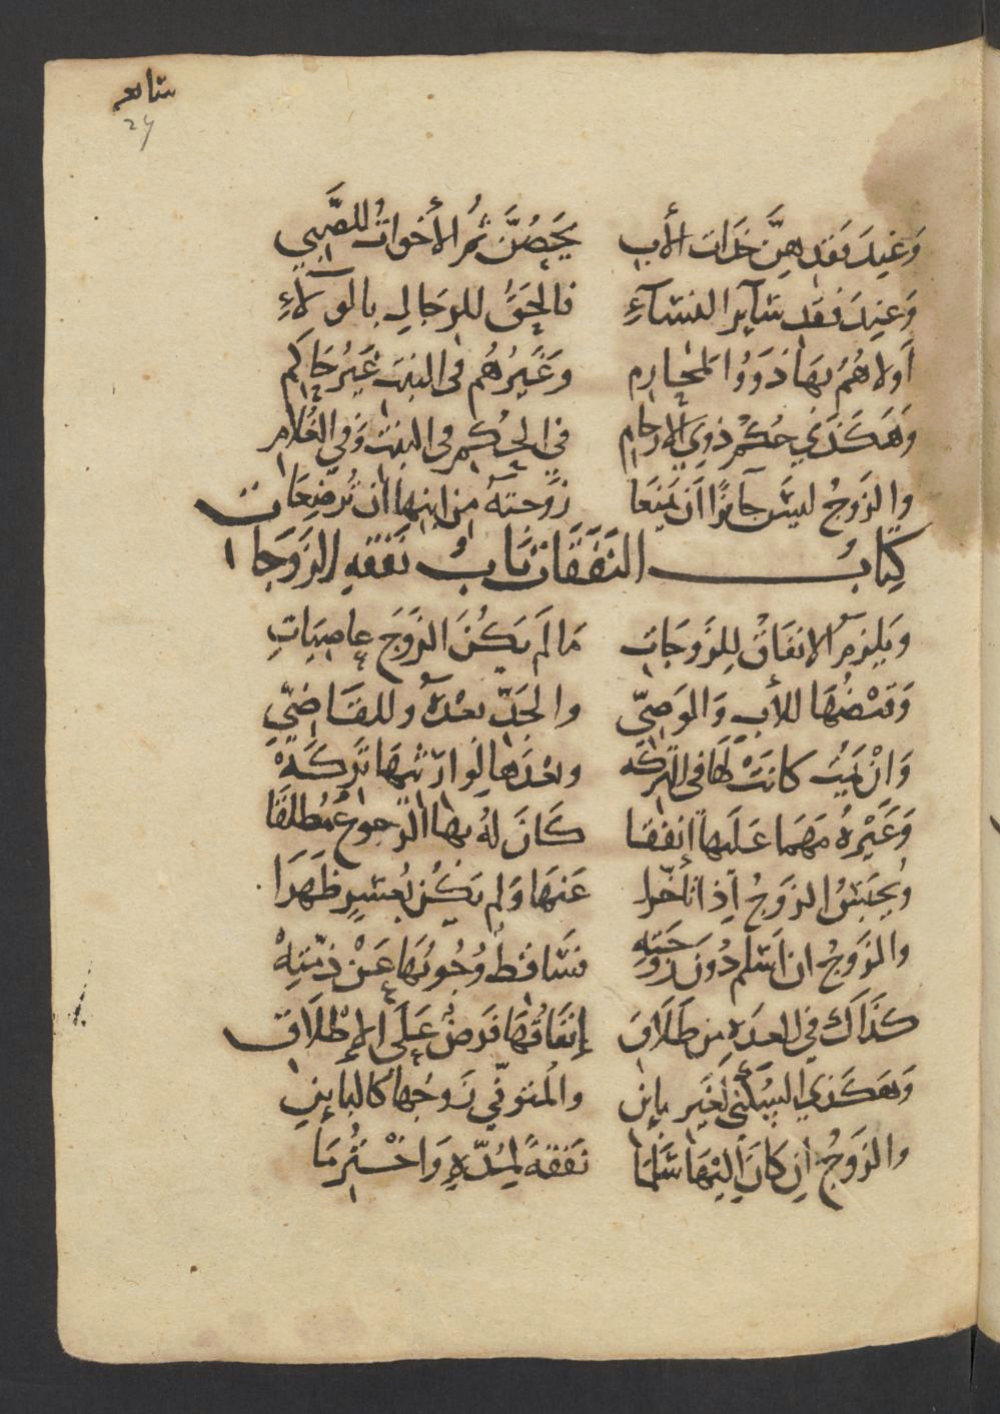 سابعه
27
وَعِنِدَ فَقْدِهِنَّ خَالات الأَبِ يَحْضُنَّ ثُمَّ الأَخَواتُ للصَّبِيِ
وَعِنِدَ فَقْد سَآيِرِ النِسَآءِ فالحَقُّ للرِجَالِ بالوَلَآءِ
أَولَاهُمُ بهَا ذَوَوُا المحَارِم وَغَيْرُهُم في البنتِ غَيرُ حَاكِم
وَهَكَذَي حُكْمُ ذوي الارحام في الحُكم في البنت وفي الغُلام
والزَوجُ ليسَ جآئزًا أَن يَمنَعَا زَوجتهُ من ابنها ان تُرضِعَا
كِتابُ النَفَقَات بَابُ نَفَقَةِ الزَوجَات
وَيلزمُ الانفَاقُ لِلزَوجَاتِ مَا لَم يَكُنَّ الزَوجَ عاصِيَاتِ
وَقَبْضُهَا للأَبِ وَالوَصِيّ والجَدِّ بعْدَهُ وللقَاضِيِّ
وَانْ يَمُت كانَتْ لهَا في التَرِكَه وبعْدَها لِوارثيهَا تَرِكَهْ
وَغَيْرُهُ مَهمَا عَلَيها إنفَقَا كَانَ لهُ بها الرجوعُ مُطلقَا
ويُحبَسُ الزوجُ إِذا تأخّرا عَنهَا وَلم يَكُن بُعسرٍ ظَهَرَا
والزَوجُ ان اَسلم دُونَ زَوجَتِهِ فسَاقطٌ وُجُوبُهَا عَنْ ذِمّتِهْ
كذَاكَ في العدَةِ من طَلَاقَ إنفَاقُهَا فَرضٌ عَلَى الإِطْلَاقِ
وَهكَذي السُكنَى لِغَيرِ باينِ والمُتوفّي زَوجُهَا كالباينِ
والزَوجُ ان كانَ إِليْهَا سَلَّمَا نَفَقَةً لِمُدّةٍ وَاخْتُرِمَا